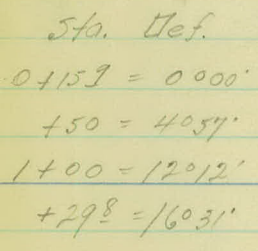 Sta. Def.
0+15⁹ = 0°00'
+50 = 4°57'
1+00 = 12°12'
+29⁸ = 16°31'